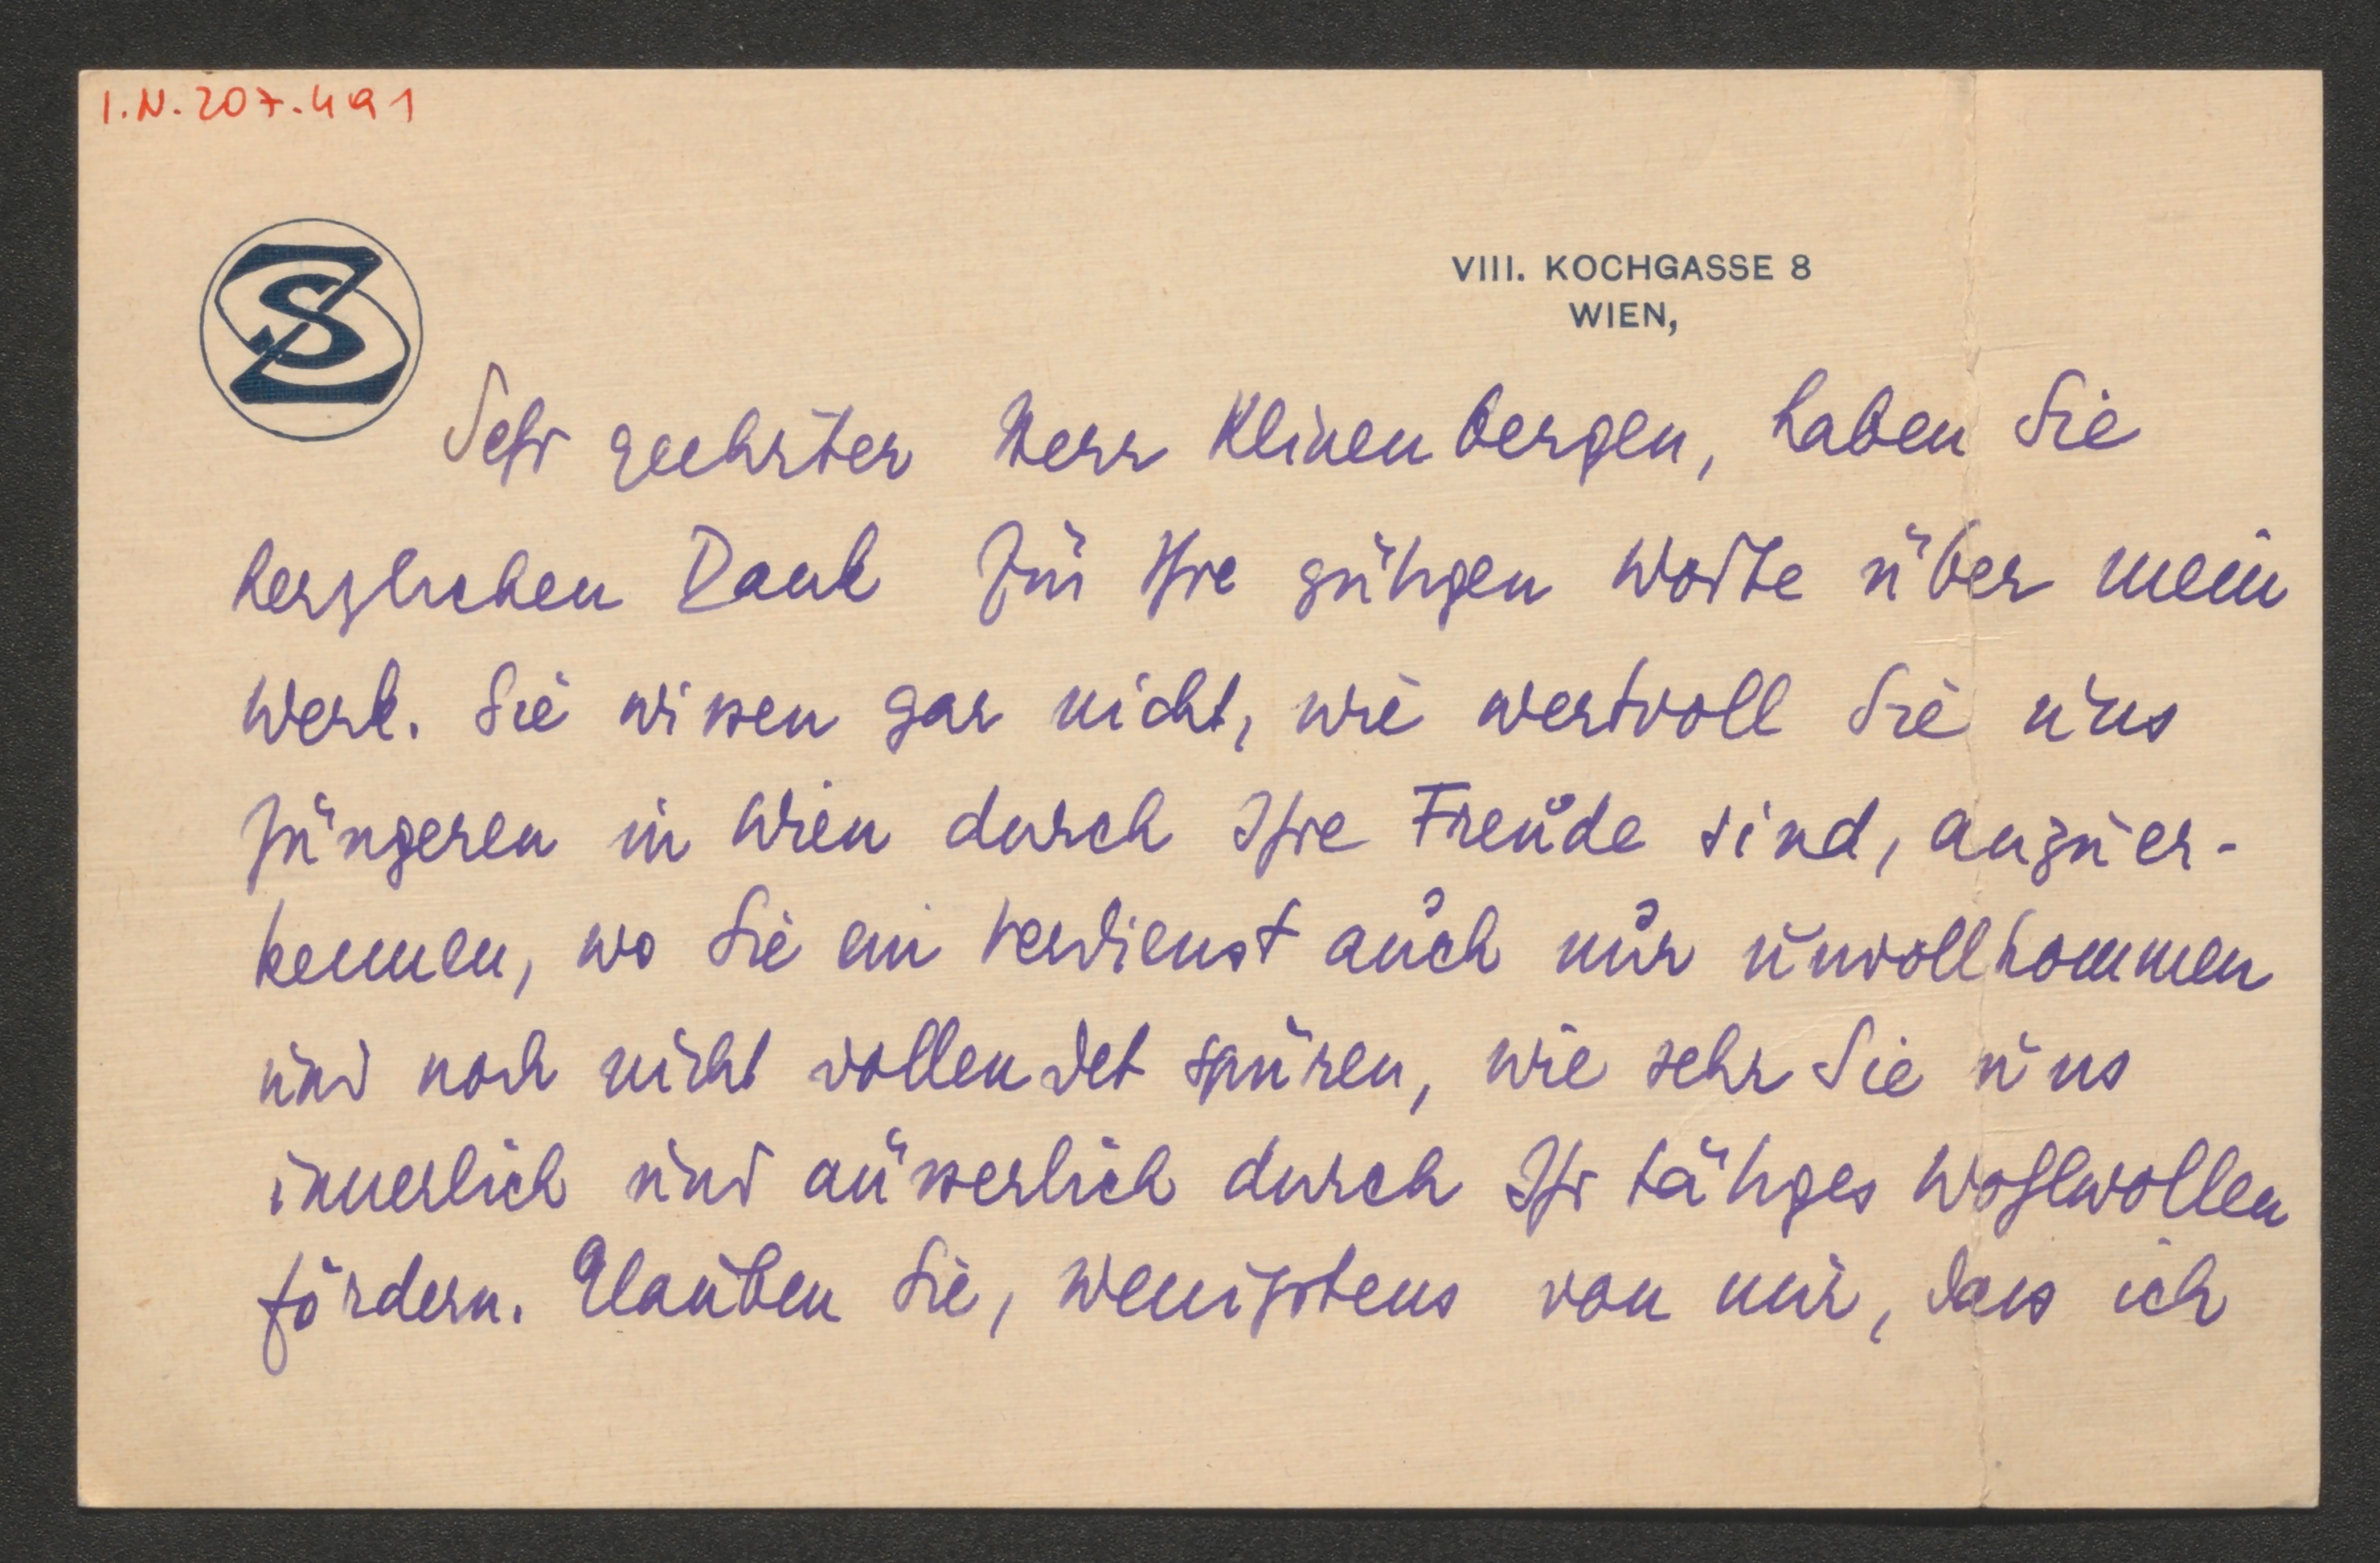 I.N. 207.491
SZ
VIII. KOCHGASSE 8
WIEN,
Sehr geehrter Herr Klinenbergen, haben Sie
herzlichen Dank für Ihre gütigen Worte über mein
Werk. Sie wissen gar nicht, wie wertvoll Sie uns
Jüngeren in Wien durch Ihre Freude sind, anzuer-
kennen, wo Sie ein Verdienst auch nur unvollkommen
und noch nicht vollendet spüren, wie sehr Sie uns
innerlich und äusserlich durch Ihr tätiges Wohlwollen
fördern. Glauben Sie, wenigstens von mir, dass ich